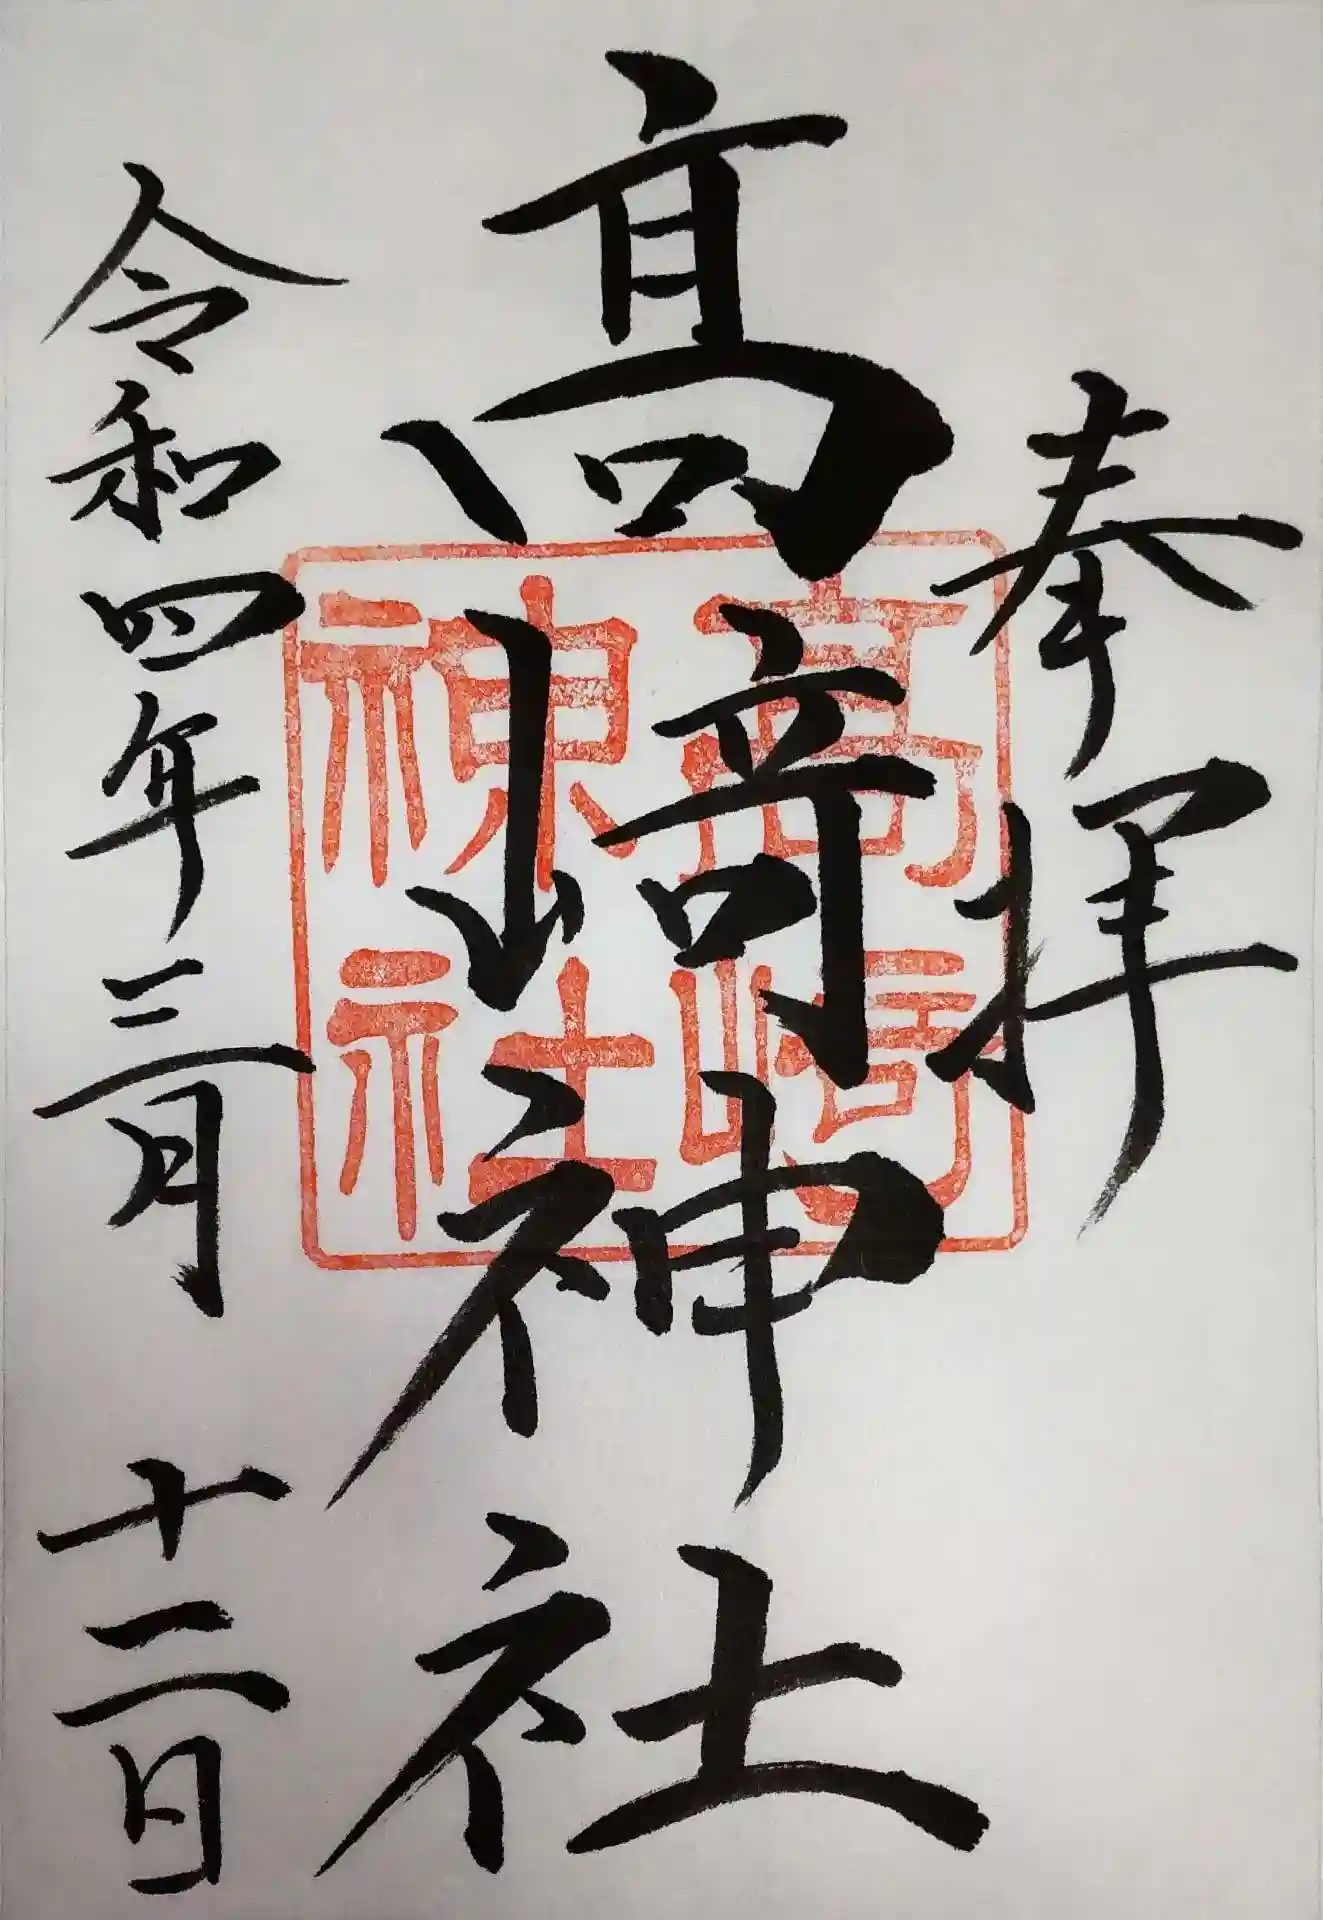 奉拝
髙﨑神社
高崎
神社
令和四年三月十二日